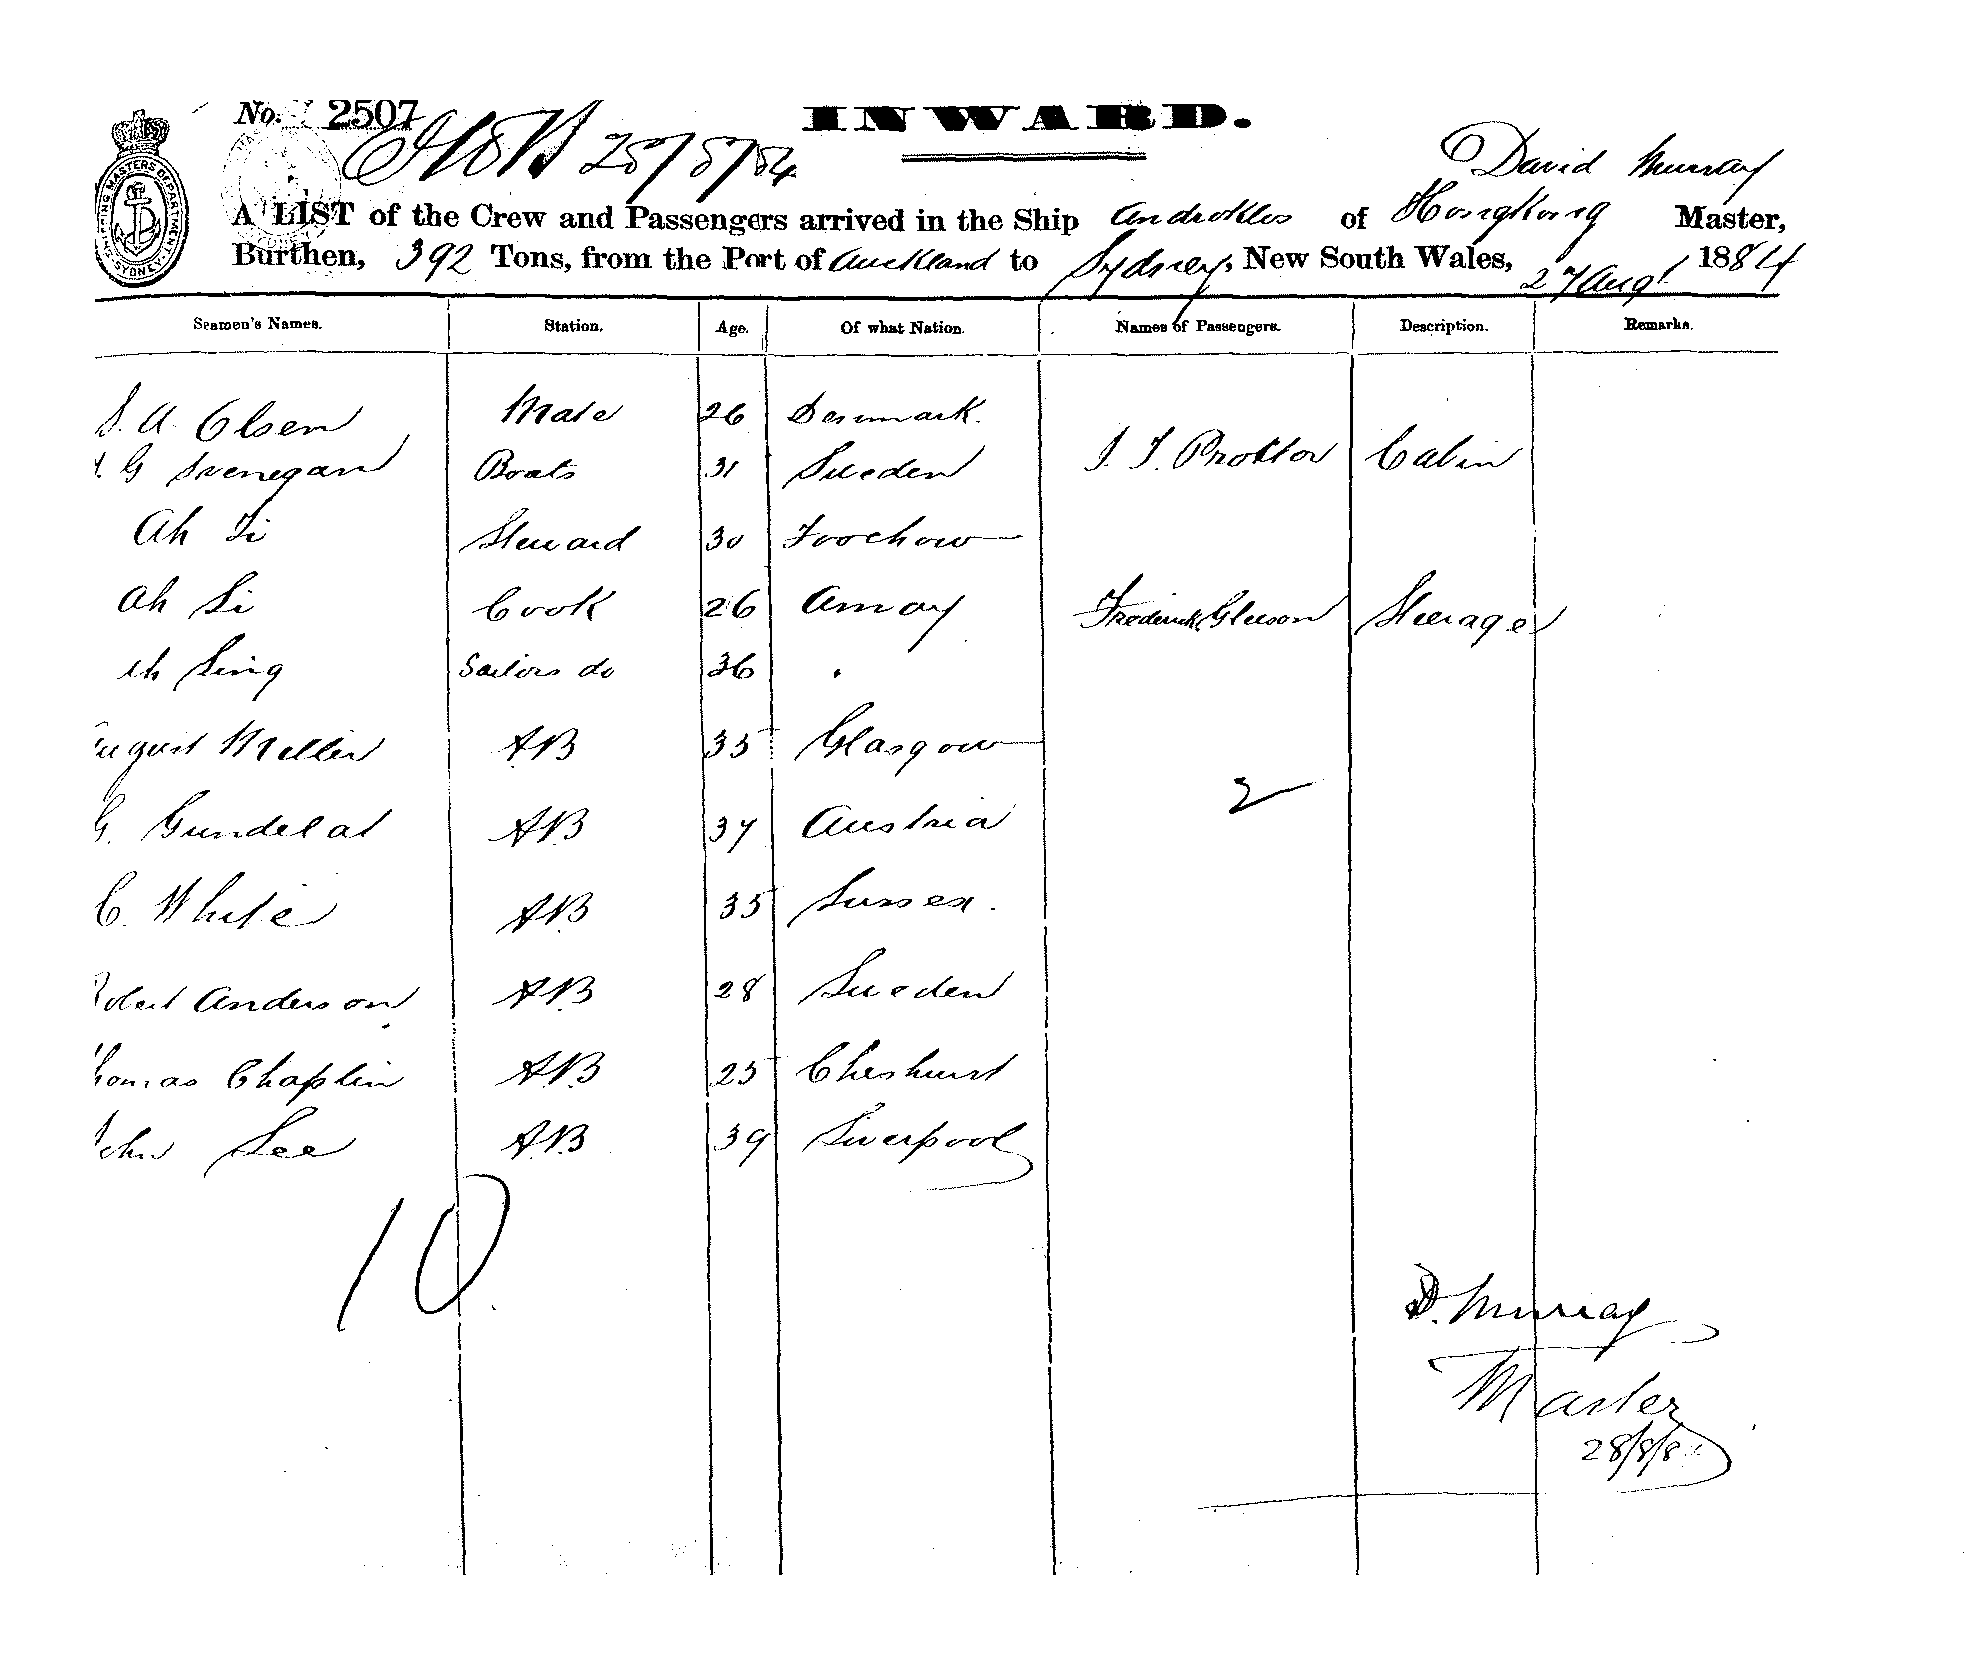 No. 2507 INWARD.
25/8/84
David Murray
A LIST of the Crew and Passengers arrived in the Ship Androklos of Hongkong Master,
Burthen, 392 Tons, from the Port of Auckland to Sydney, New South Wales, 27 Augt 1884
SHIPPING MASTERS DEPARTMENT SYDNEY
Seamen's Names. Station. Age. Of what Nation. Names of Passengers. Description. Remarks.
S. A. Olsen Mate 26 Denmark.
G Svenegan Boats 31 Sweden J. J. Proktor Cabin
Ah Ti Steward 30 Foochow
Ah Li Cook 26 Amoy Frederick Gleeson Steerage
Ah Sing Sailors do 36 "
August Meller AB 35 Glasgow
G. Gundelat AB 37 Austria
2
C. White AB 35 Sussex.
Robert Anderson AB 28 Sweden
Thomas Chaplin AB 25 Cheshurst
John Lee AB 39 Liverpool
10
D. Murray
Master
28/8/8